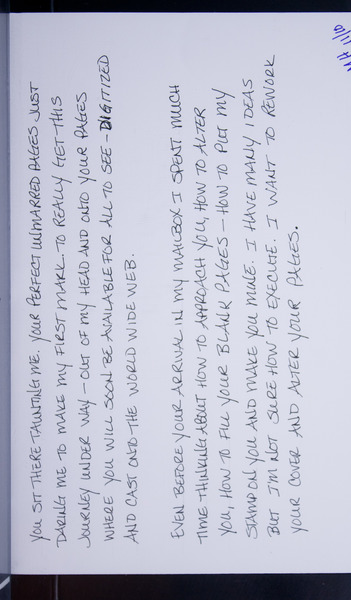 YOU SIT THERE TAUNTING ME. YOUR PERFECT UNMARRED PAGES JUST
DARING ME TO MAKE MY FIRST MARK. TO REALLY GET THIS
JOURNEY UNDER WAY - OUT OF MY HEAD AND ONTO YOUR PAGES
WHERE YOU WILL SOON BE AVAILABLE FOR ALL TO SEE - DIGITIZED
AND CAST ONTO THE WORLD WIDE WEB.
EVEN BEFORE YOUR ARRIVAL IN MY MAILBOX I SPENT MUCH
TIME THINKING ABOUT HOW TO APPROACH YOU, HOW TO ALTER
YOU, HOW TO FILL YOUR BLANK PAGES - HOW TO PUT MY
STAMP ON YOU AND MAKE YOU MINE. I HAVE MANY IDEAS
BUT I'M NOT SURE HOW TO EXECUTE. I WANT TO REWORK
YOUR COVER AND ALTER YOUR PAGES.